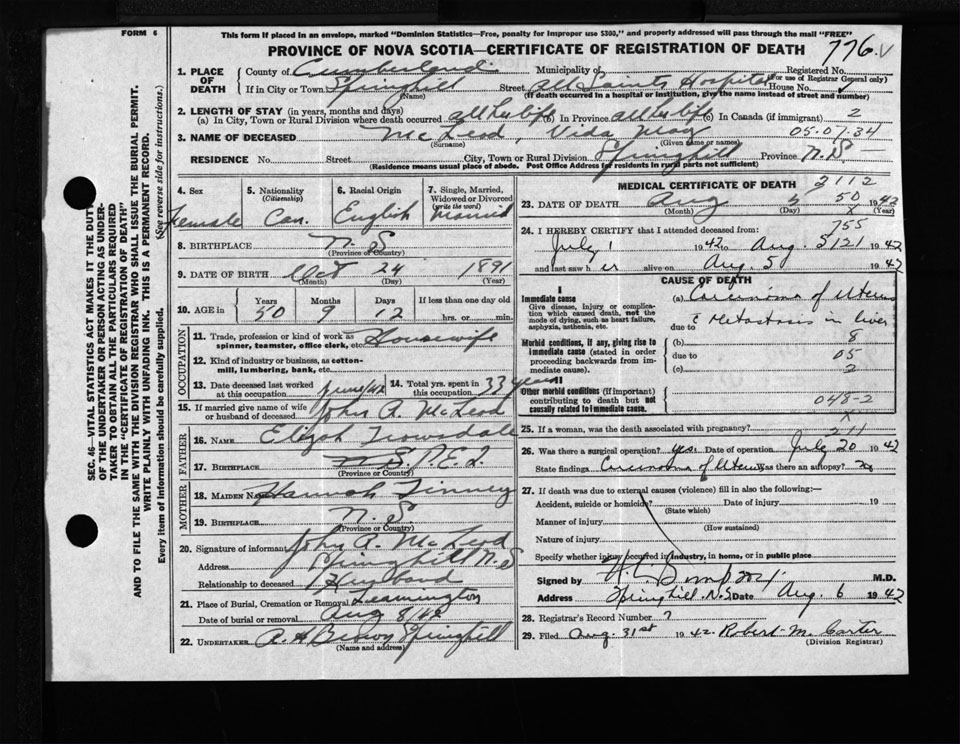 FORM 6
This form if placed in an envelope, marked "Dominion Statistics—Free, penalty for improper use $300," and properly addressed will pass through the mail "FREE"
PROVINCE OF NOVA SCOTIA—CERTIFICATE OF REGISTRATION OF DEATH
776
1. PLACE OF DEATH
County of Cumberland Municipality of Registered No.
(For use of Registrar General only)
If in City or Town Springhill Street All Saints Hospital House No.
(Name) (If death occurred in a hospital or institution, give the name instead of street and number)
2. LENGTH OF STAY (in years, months and days)
(a) In City, Town or Rural Division where death occurred all her life (b) In Province all her life (c) In Canada (if immigrant) 2
3. NAME OF DECEASED McLeod, Vida May 05.07.34
(Surname) (Given name or names)
RESIDENCE No. Street City, Town or Rural Division Springhill Province N.S
(Residence means usual place of abode. Post Office Address for residents in rural parts not sufficient)
SEC. 46—VITAL STATISTICS ACT MAKES IT THE DUTY
OF THE UNDERTAKER OR PERSON ACTING AS UNDER-
TAKER TO OBTAIN ALL THE PARTICULARS REQUIRED
IN THE "CERTIFICATE OF REGISTRATION OF DEATH"
AND TO FILE THE SAME WITH THE DIVISION REGISTRAR WHO SHALL ISSUE THE BURIAL PERMIT.
WRITE PLAINLY WITH UNFADING INK. THIS IS A PERMANENT RECORD.
Every item of information should be carefully supplied. (See reverse side for instructions.)
4. Sex Female
5. Nationality (Citizenship) Can.
6. Racial Origin English
7. Single, Married, Widowed or Divorced (write the word) Married
8. BIRTHPLACE N. S
(Province or Country)
9. DATE OF BIRTH Oct 24 1891
(Month) (Day) (Year)
10. AGE in Years Months Days If less than one day old
50 9 12 hrs. or min.
OCCUPATION
11. Trade, profession or kind of work as spinner, teamster, office clerk, etc. Housewife
12. Kind of industry or business, as cotton-mill, lumbering, bank, etc.
13. Date deceased last worked at this occupation June/42 14. Total yrs. spent in this occupation 33 years
15. If married give name of wife or husband of deceased John R. McLeod
FATHER
16. NAME Elijah Trowsdale
17. BIRTHPLACE P.E.I.
(Province or Country)
MOTHER
18. MAIDEN NAME Hannah Finney
19. BIRTHPLACE N. S.
(Province or Country)
20. Signature of informant John R. McLeod
Address Springhill N.S
Relationship to deceased Husband
21. Place of Burial, Cremation or Removal Leamington
Date of burial or removal Aug 8/42
22. UNDERTAKER A. H Brown Springhill
(Name and address)
MEDICAL CERTIFICATE OF DEATH 3112
23. DATE OF DEATH Aug 5 50 1942
(Month) (Day) (Year)
24. I HEREBY CERTIFY that I attended deceased from: 755
July 1 1942 to Aug. 3121 1942
and last saw h er alive on Aug. 5 1942
CAUSE OF DEATH
I
Immediate cause
Give disease, injury or complication which caused death, not the mode of dying, such as heart failure, asphyxia, asthenia, etc.
(a) Carcinoma of Uterus
c Metastasis in liver
due to
Morbid conditions, if any, giving rise to immediate cause (stated in order proceeding backwards from immediate cause).
(b) 8
due to 05
(c) 2
II
Other morbid conditions (if important) contributing to death but not causally related to immediate cause.
048-2
25. If a woman, was the death associated with pregnancy? 211
26. Was there a surgical operation? yes. Date of operation July 20 1942
State findings Carcinoma of Uterus Was there an autopsy? no
27. If death was due to external causes (violence) fill in also the following:—
Accident, suicide or homicide? Date of injury 19
(State which)
Manner of injury
(How sustained)
Nature of injury
Specify whether injury occurred in industry, in home, or in public place
Signed by M.D.
Address Springhill. N.S Date Aug. 6 1942
28. Registrar's Record Number 7
29. Filed Aug. 31st 1942. Robert M. Carter
(Division Registrar)